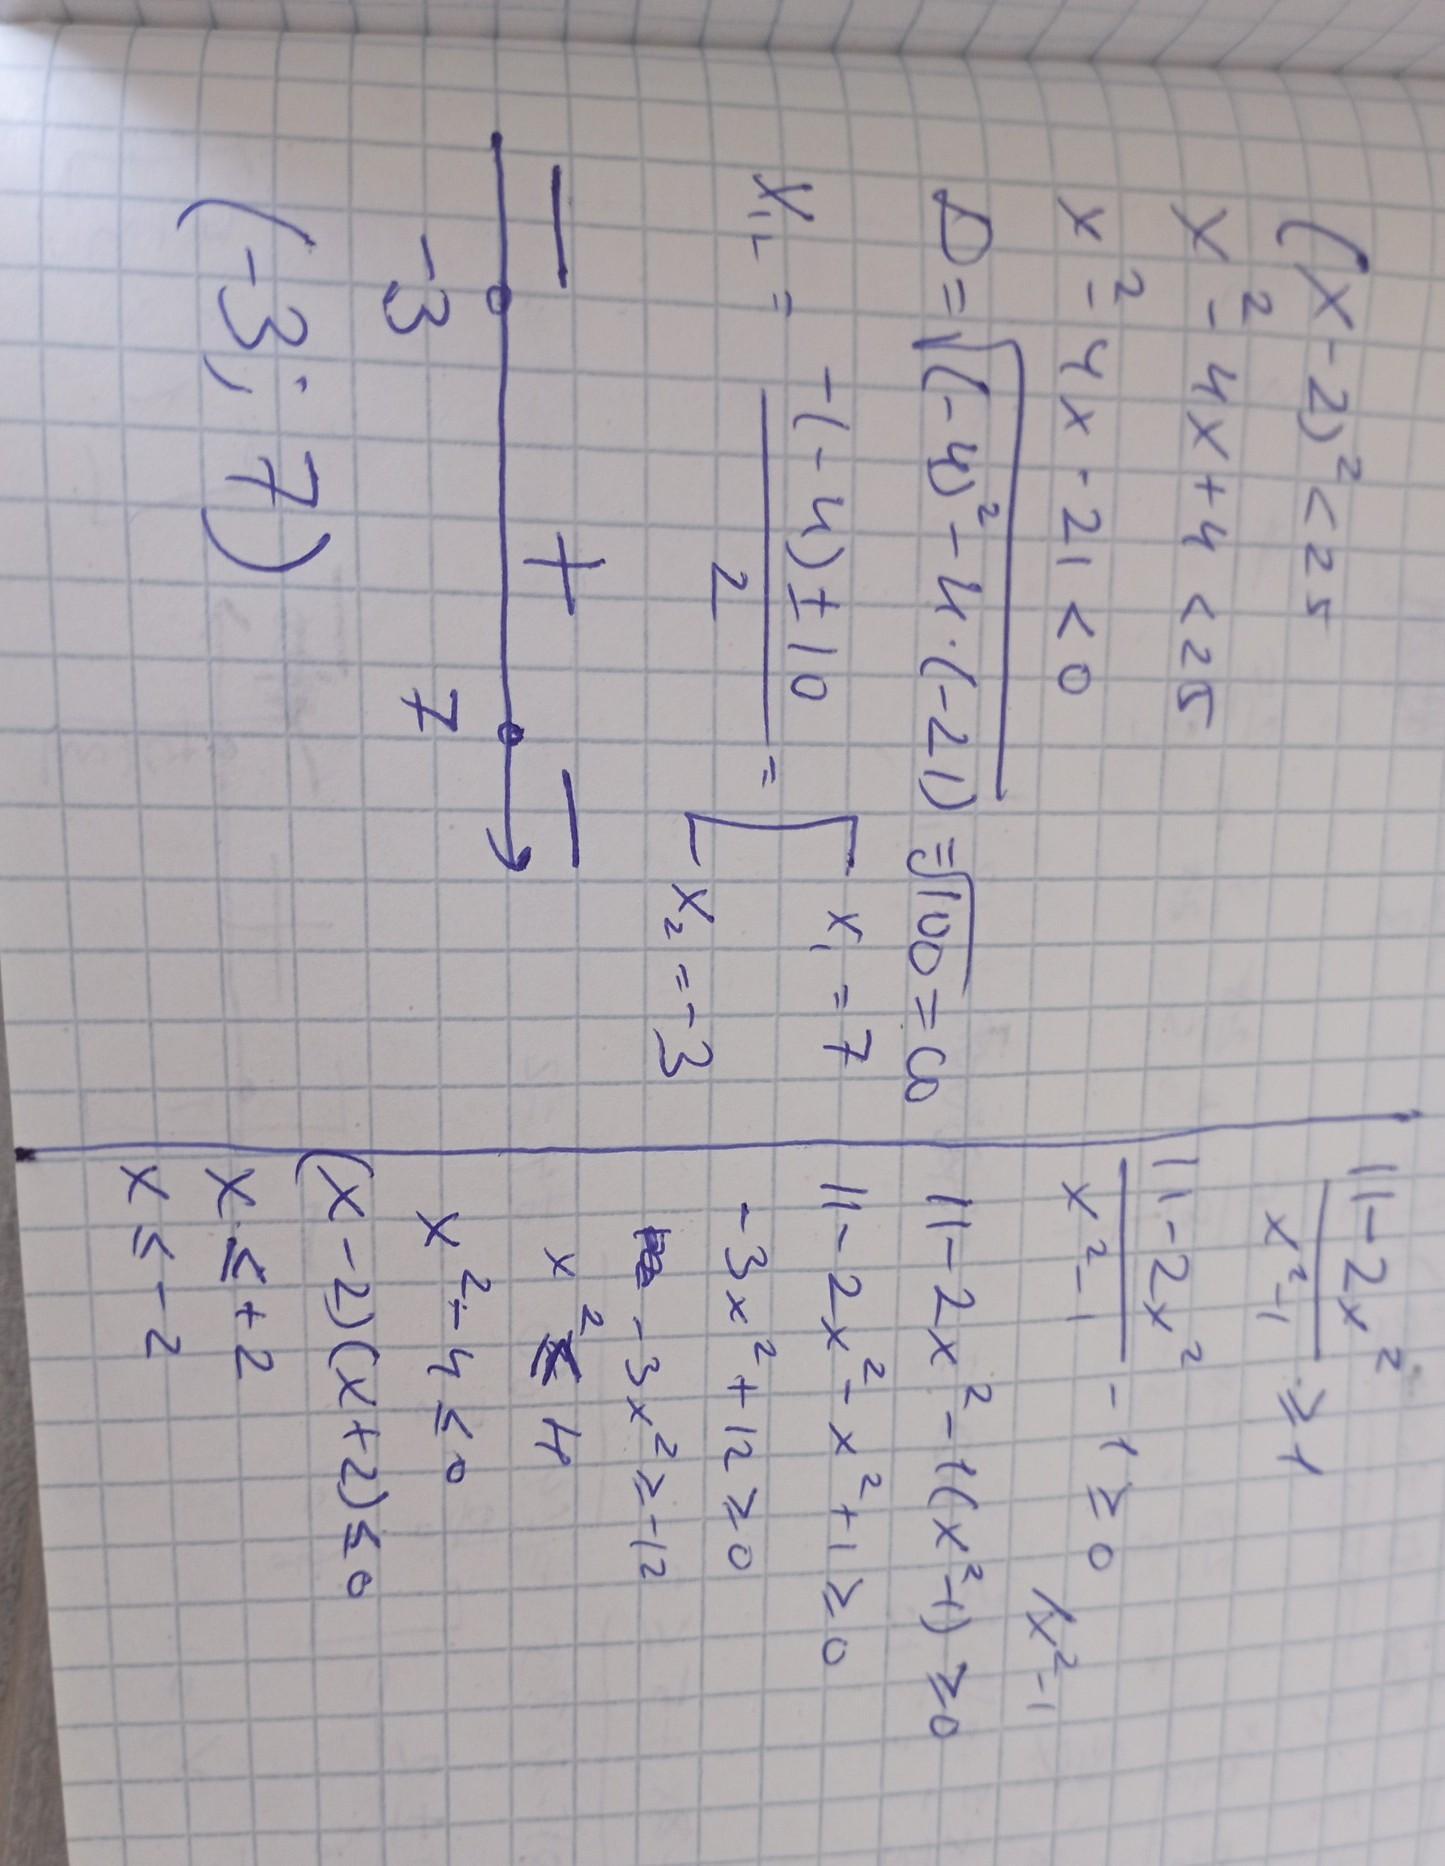 (x-2)² < 25
x² - 4x + 4 < 25
x² - 4x - 21 < 0
D = √((-4)² - 4·(-21)) = √100 = 10
x₁,₂ = (-(-4) ± 10)/2 = [ x₁ = 7
x₂ = -3
- + -
-3 7
(-3; 7)
(11 - 2x²)/(x² - 1) ≥ 1
(11 - 2x²)/(x² - 1) - 1 ≥ 0 /x² - 1
11 - 2x² - 1(x² - 1) ≥ 0
11 - 2x² - x² + 1 ≥ 0
-3x² + 12 ≥ 0
-3x² ≥ -12
x² ≤ 4
x² - 4 ≤ 0
(x - 2)(x + 2) ≤ 0
x ≤ +2
x ≤ -2